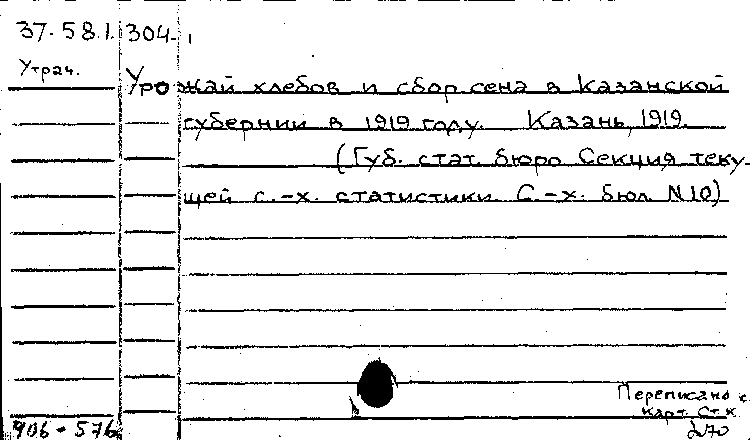 37.58.1. 304.
Утрач.
Урожай хлебов и сбор сена в Казанской
губернии в 1919 году. Казань, 1919.
(Губ. стат. бюро Секция теку-
щей с.-х. статистики. С.-х. бюл. N10)
Переписано с
карт. Ст. к.
906-576